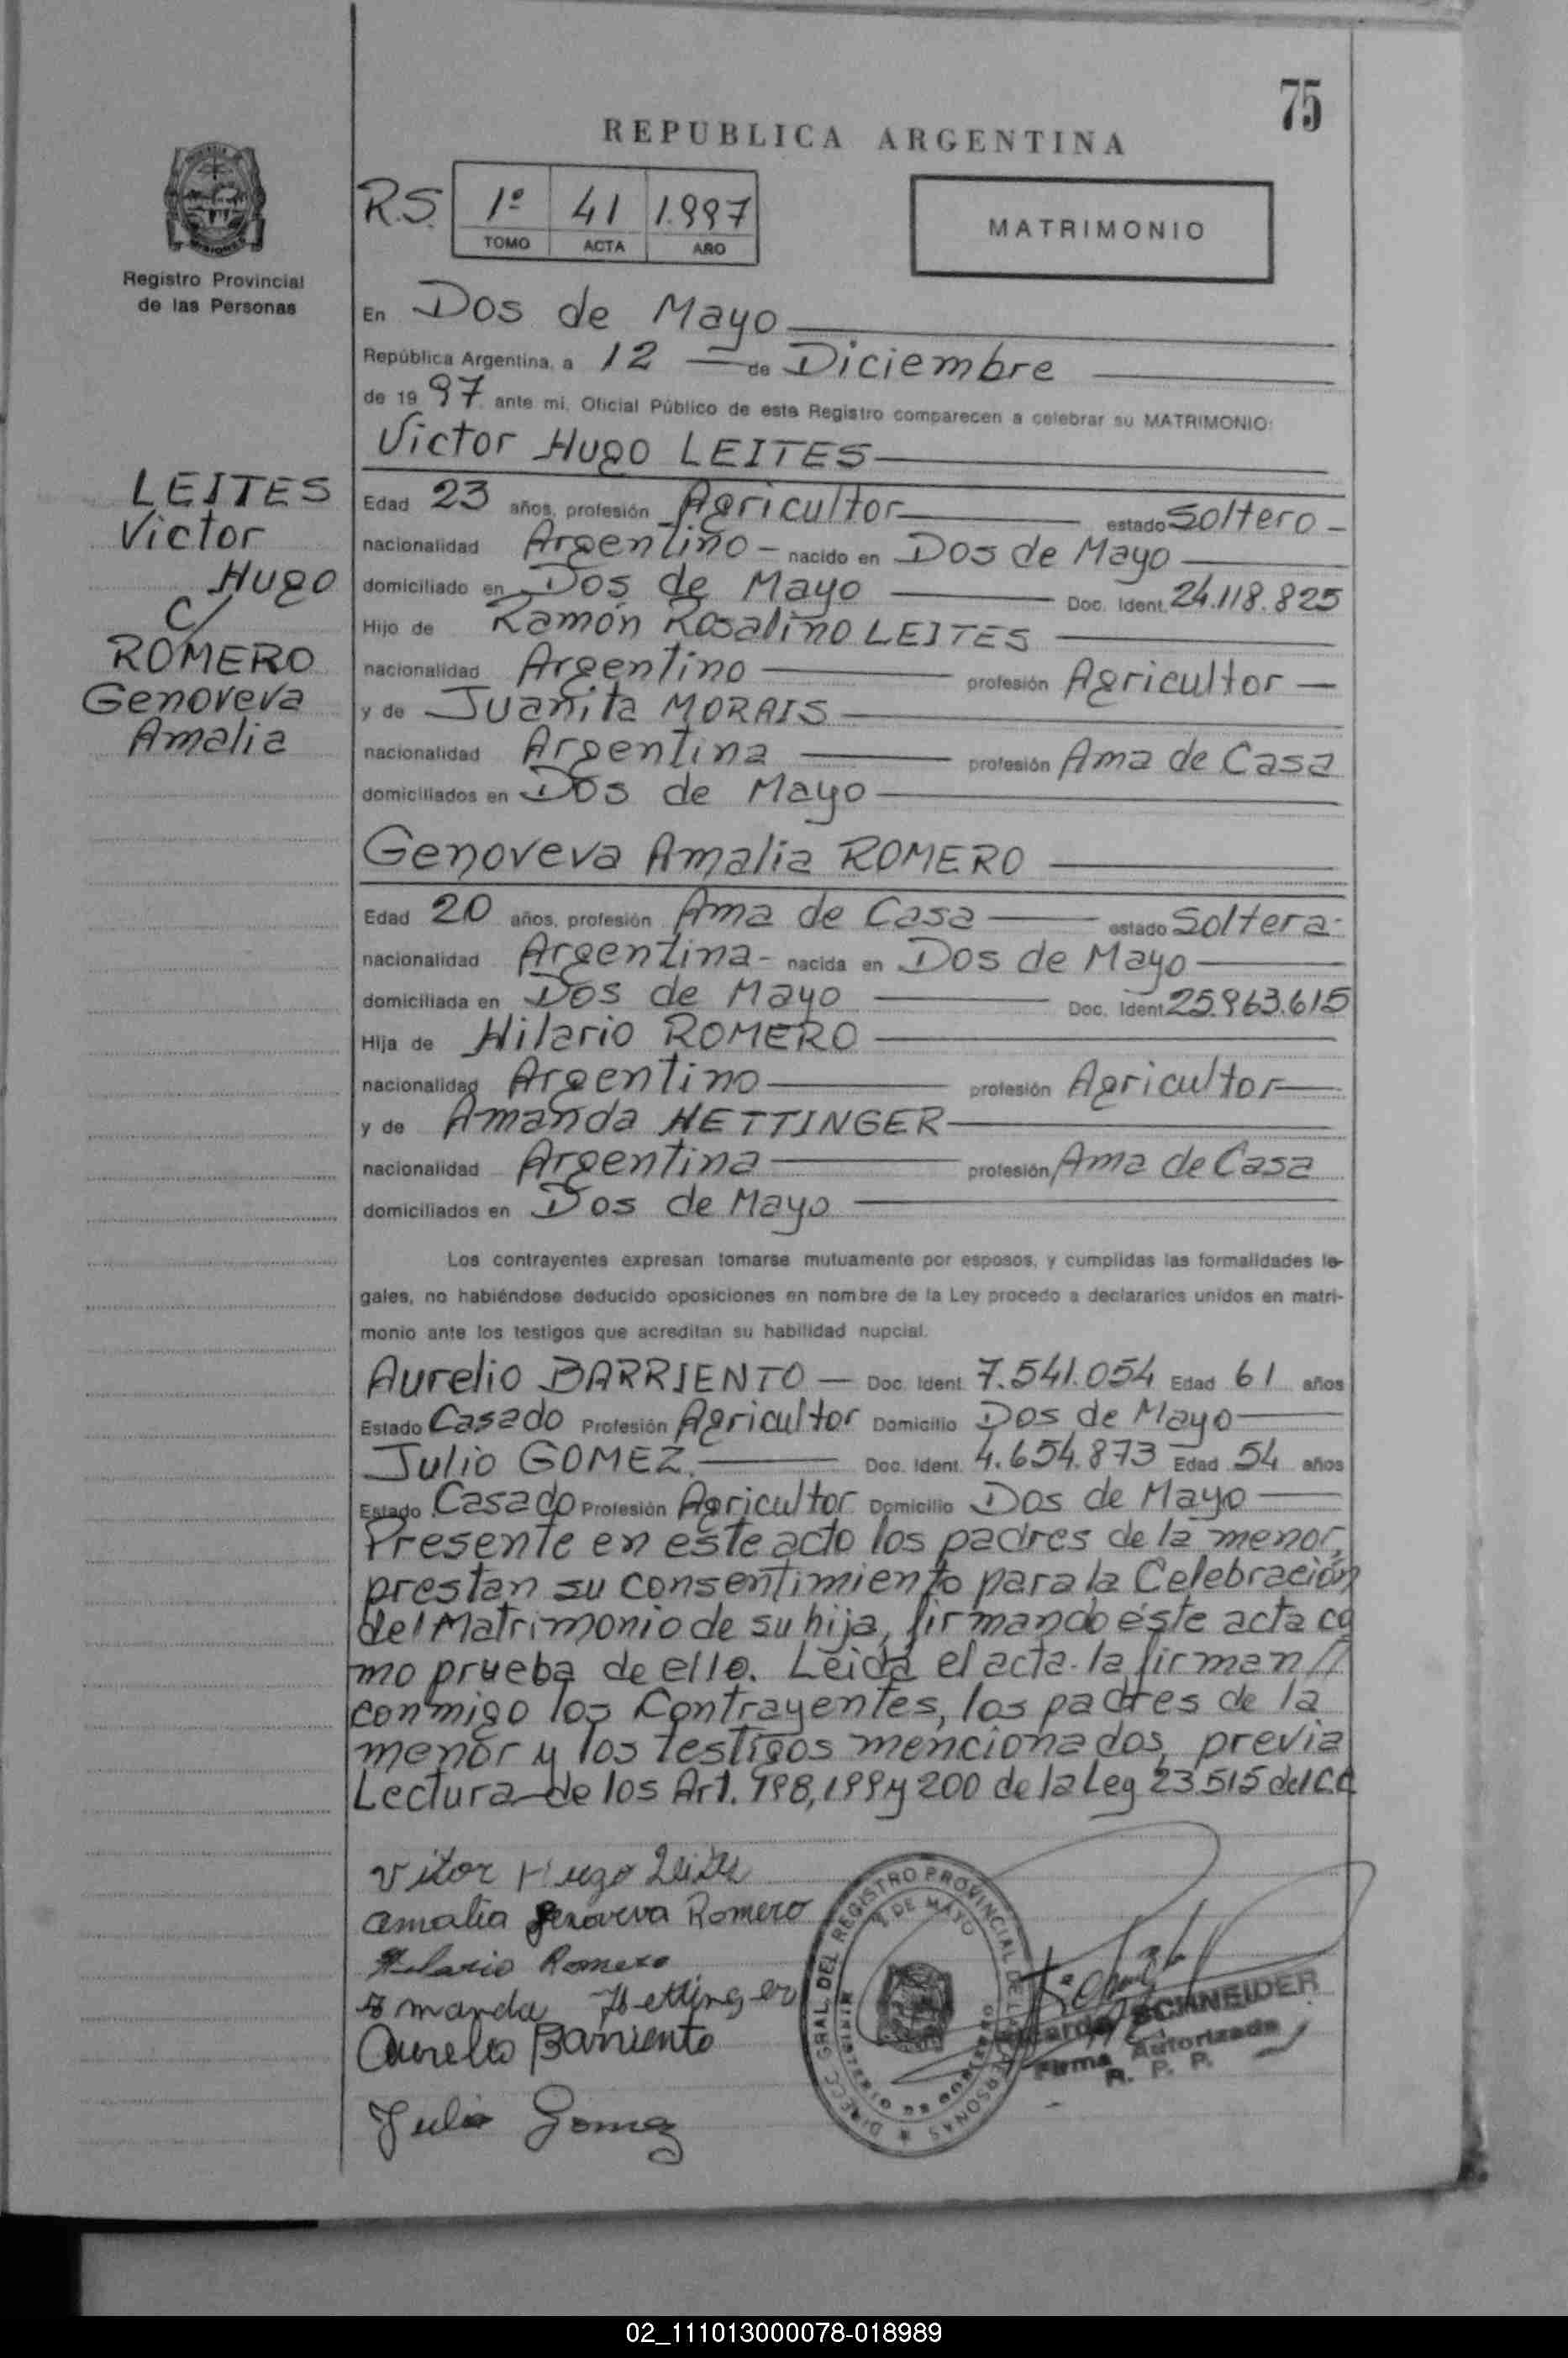 75
REPUBLICA ARGENTINA
R.S. 1º 41 1.997
TOMO ACTA AÑO
MATRIMONIO
Registro Provincial
de las Personas
En Dos de Mayo
República Argentina, a 12 de Diciembre
de 19 97 ante mi, Oficial Público de este Registro comparecen a celebrar su MATRIMONIO:
Victor Hugo LEITES
LEITES
Victor
Hugo
C/
ROMERO
Genoveva
Amalia
Edad 23 años, profesión Agricultor estado Soltero
nacionalidad Argentino nacido en Dos de Mayo
domiciliado en Dos de Mayo Doc. Ident. 24.118.825
Hijo de Ramón Rosalino LEITES
nacionalidad Argentino profesión Agricultor
y de Juanita MORAIS
nacionalidad Argentina profesión Ama de Casa
domiciliados en Dos de Mayo
Genoveva Amalia ROMERO
Edad 20 años, profesión Ama de Casa estado Soltera
nacionalidad Argentina nacida en Dos de Mayo
domiciliada en Dos de Mayo Doc. Ident. 25.963.615
Hija de Hilario ROMERO
nacionalidad Argentino profesión Agricultor
y de Amanda HETTINGER
nacionalidad Argentina profesión Ama de Casa
domiciliados en Dos de Mayo
Los contrayentes expresan tomarse mutuamente por esposos, y cumplidas las formalidades le-
gales, no habiéndose deducido oposiciones en nombre de la Ley procedo a declararlos unidos en matri-
monio ante los testigos que acreditan su habilidad nupcial.
Aurelio BARRIENTO Doc. Ident. 7.541.054 Edad 61 años
Estado Casado Profesión Agricultor Domicilio Dos de Mayo
Julio GOMEZ. Doc. Ident. 4.654.873 Edad 54 años
Estado Casado Profesión Agricultor Domicilio Dos de Mayo
Presente en este acto los padres de la menor,
prestan su consentimiento para la Celebración
del Matrimonio de su hija, firmando éste acta co
mo prueba de ello. Leida el acta la firman //
conmigo los Contrayentes, los padres de la
menor y los testigos mencionados, previa
Lectura de los Art. 198, 199 y 200 de la Ley 23.515 del C.C
Vitor Hugo Leites
Amalia Genoveva Romero
Hilario Romero
Amanda Hettinger
Aurelio Barriento
Julio Gomez
DIRECC. GRAL. DEL REGISTRO PROVINCIAL DE LAS PERSONAS
2 DE MAYO
MINISTERIO DE GOBIERNO
Ricardo SCHNEIDER
Firma Autorizada
R. P. P.
02_111013000078-018989